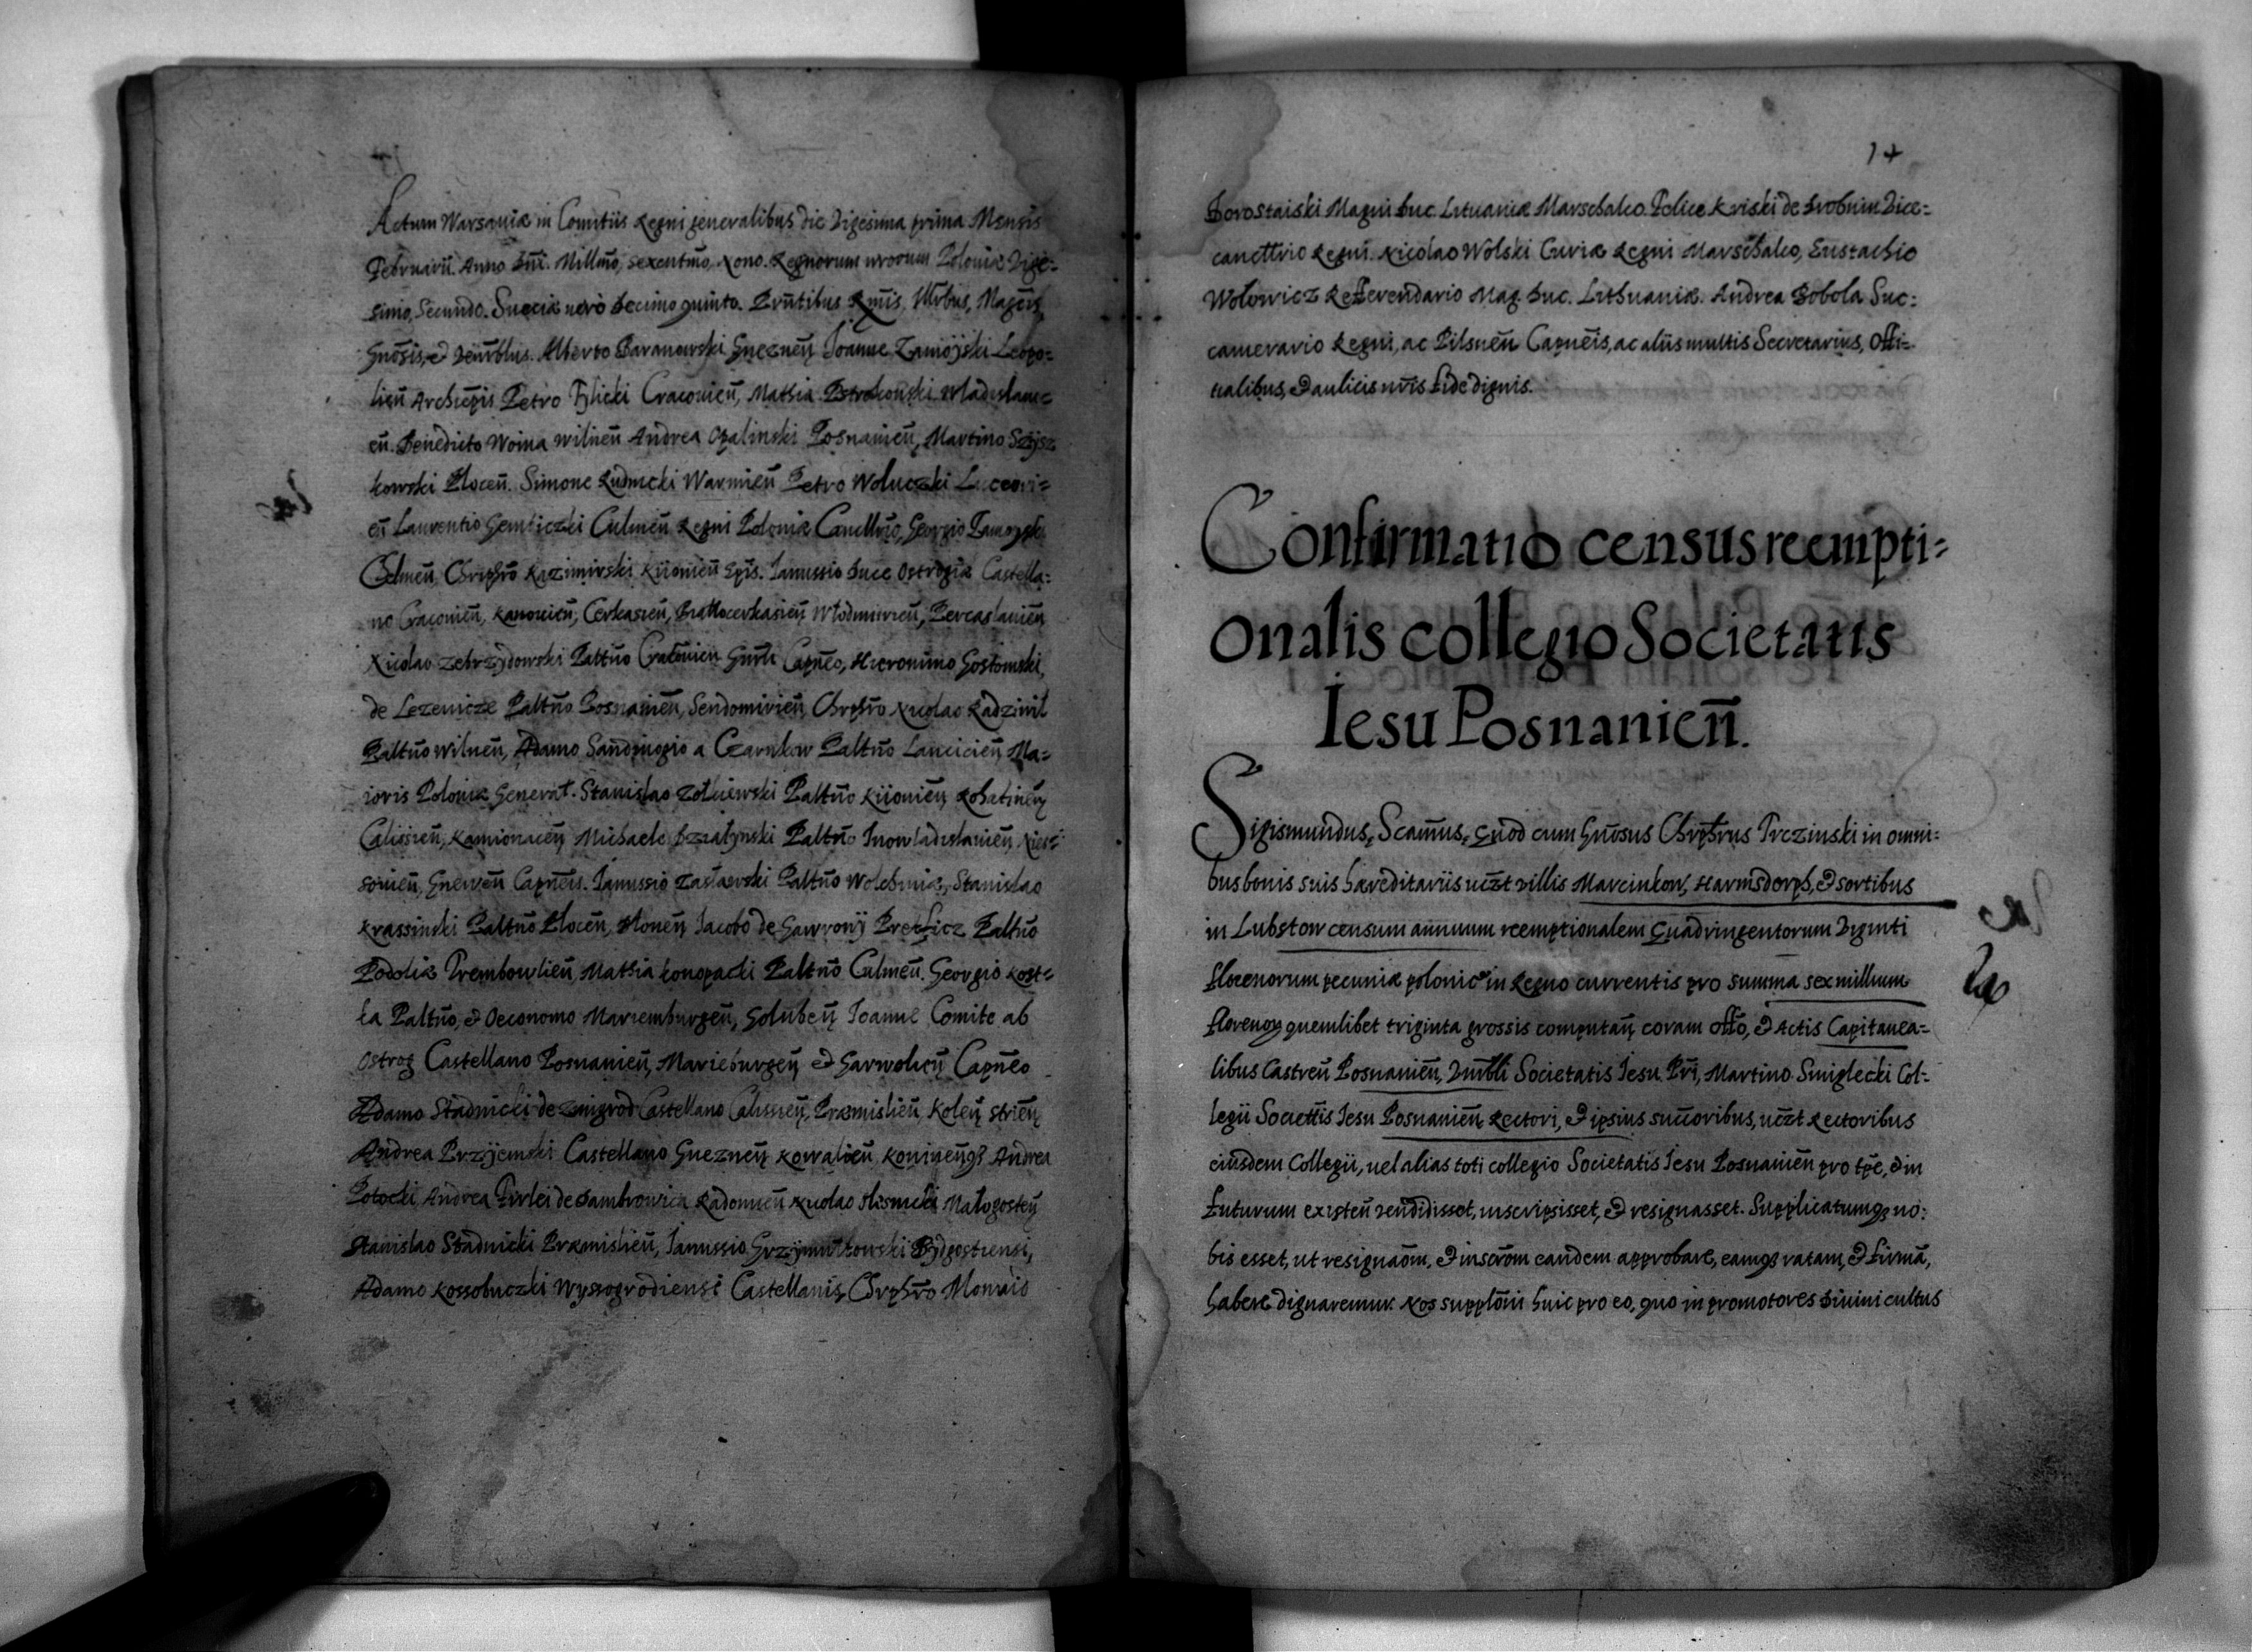 Actum Warsaviæ in Comitiis Regni generalibus die Vigesima prima Mensis
Februarii. Anno Dni. Millmo, sexcentmo, Nono. Regnorum nrorum Poloniæ Vige=
simo, Secundo. Sueciæ vero decimo quinto. Pruntibus Rmis, Illrbus, Magcis,
Gnosis, et Venrblus. Alberto Baranowski Gneznen Ioanne Zamoyski Leopo=
lien Archiepis Petro Tylicki Cracovien, Mathia Pstrokonski Wladislavi=
en. Benedicto Woina Wilnen Andrea Opalinski Posnanien, Martino Szysz
kowski Plocen. Simone Rudnicki Warmien Petro Woluczki Luceori=
en Laurentio Gembiczki Culmen Regni Poloniæ Cancllrio, Georgio Zamoyski
Chelmen, Chrsphro Kazimirski Kiiovien Epis. Ianussio Duce Ostrogiæ Castella=
no Cracovien, Kanovien, Cerkasien, Biallocerkasien Wlodimirien, Pereaslavien
Nicolao Zebrzydowski Paltno Cracovien Gnrli Capneo, Hieronimo Gostomski,
de Lezenicze Paltno Posnanien, Sendomirien, Chrsphro Nicolao Radziwil
Paltno Wilnen, Adamo Sandivogio a Czarnkow Paltno Lancicien Ma=
ioris Poloniæ General. Stanislao Zolkiewski Paltno Kiiovien Rohatinen
Calissien, Kamionacen Michaele Dzialynski Paltno Inowladislavien Nies=
sovien, Gneven Capneis. Ianussio Zaslawski Paltno Wolchniæ, Stanislao
Krassinski Paltno Plocen, Iacobo de Gawrony Pretficz Paltno
Podoliæ Trembowlien, Mathia Konopacki Paltno Culmen. Georgio Kost=
ka Paltno, et Oeconomo Mariemburgen, Goluben Ioanne Comite ab
Ostrog Castellano Posnanien, Marieburgen et Garwolien Capneo
Adamo Stadnicki de Zmigrod Castellano Calissien, Præmislien, Kolen strien
Andrea Przyiemski Castellano Gneznen Kowalien Koninenq3 Andrea
Potocki Andrea Firlei de Dambrowica Radomien Nicolao Malogosten
Stanislao Stadnicki Præmislien, Ianussio Grzymultowski Bydgostiensi,
Adamo Kossobuczki Wyssogrodiensi Castellanis, Chrsphro Monwid
14
Dorostaiski Magni Duc. Lituaniæ Marschalco. Felice Kriski de Drobnin Vice=
cancllrio Regni. Nicolao Wolski Curiæ Regni Marschalco, Eustachio
Wolowicz Refferendario Mag. Duc. Lithuaniæ. Andrea Bobola Suc=
camerario Regni, ac Pilsnen Capneis, ac aliis multis Secretariis, Offi=
tialibus, et aulicis nris fide dignis.
Confirmatio census reempti=
onalis collegio Societatis
Iesu Posnanien.
Sigismundus, Scamus, Quod cum Gnosus Chrphrus Trczinski in omni=
bus bonis suis hæreditariis uczt villis Marcinkow, Harmsdorph, et sortibus
in Lubstow censum annuum reemptionalem Quadringentorum Viginti
florenorum pecuniæ polonicæ in Regno currentis pro summa sex millium
floreno4 quemlibet triginta grossis computan coram offo, et Actis Capitanea=
libus Castren Posnanien, Vnrbli Societatis Iesu Pri, Martino Smiglecki Col=
legii Societtis Iesu Posnanien Rectori, et ipsius succoribus, uczt Rectoribus
eiusdem Collegii, vel alias toti collegio Societatis Iesu Posnanien pro tpe, et in
futurum existen vendidisset, inscripsisset, et resignasset. Supplicatumq3 no=
bis esset, ut resignaom, et inscrom eandem approbare, eamq3 ratam, et firma,
habere dignaremur. Nos supplôni huic pro eo, quo in promotores divini cultus